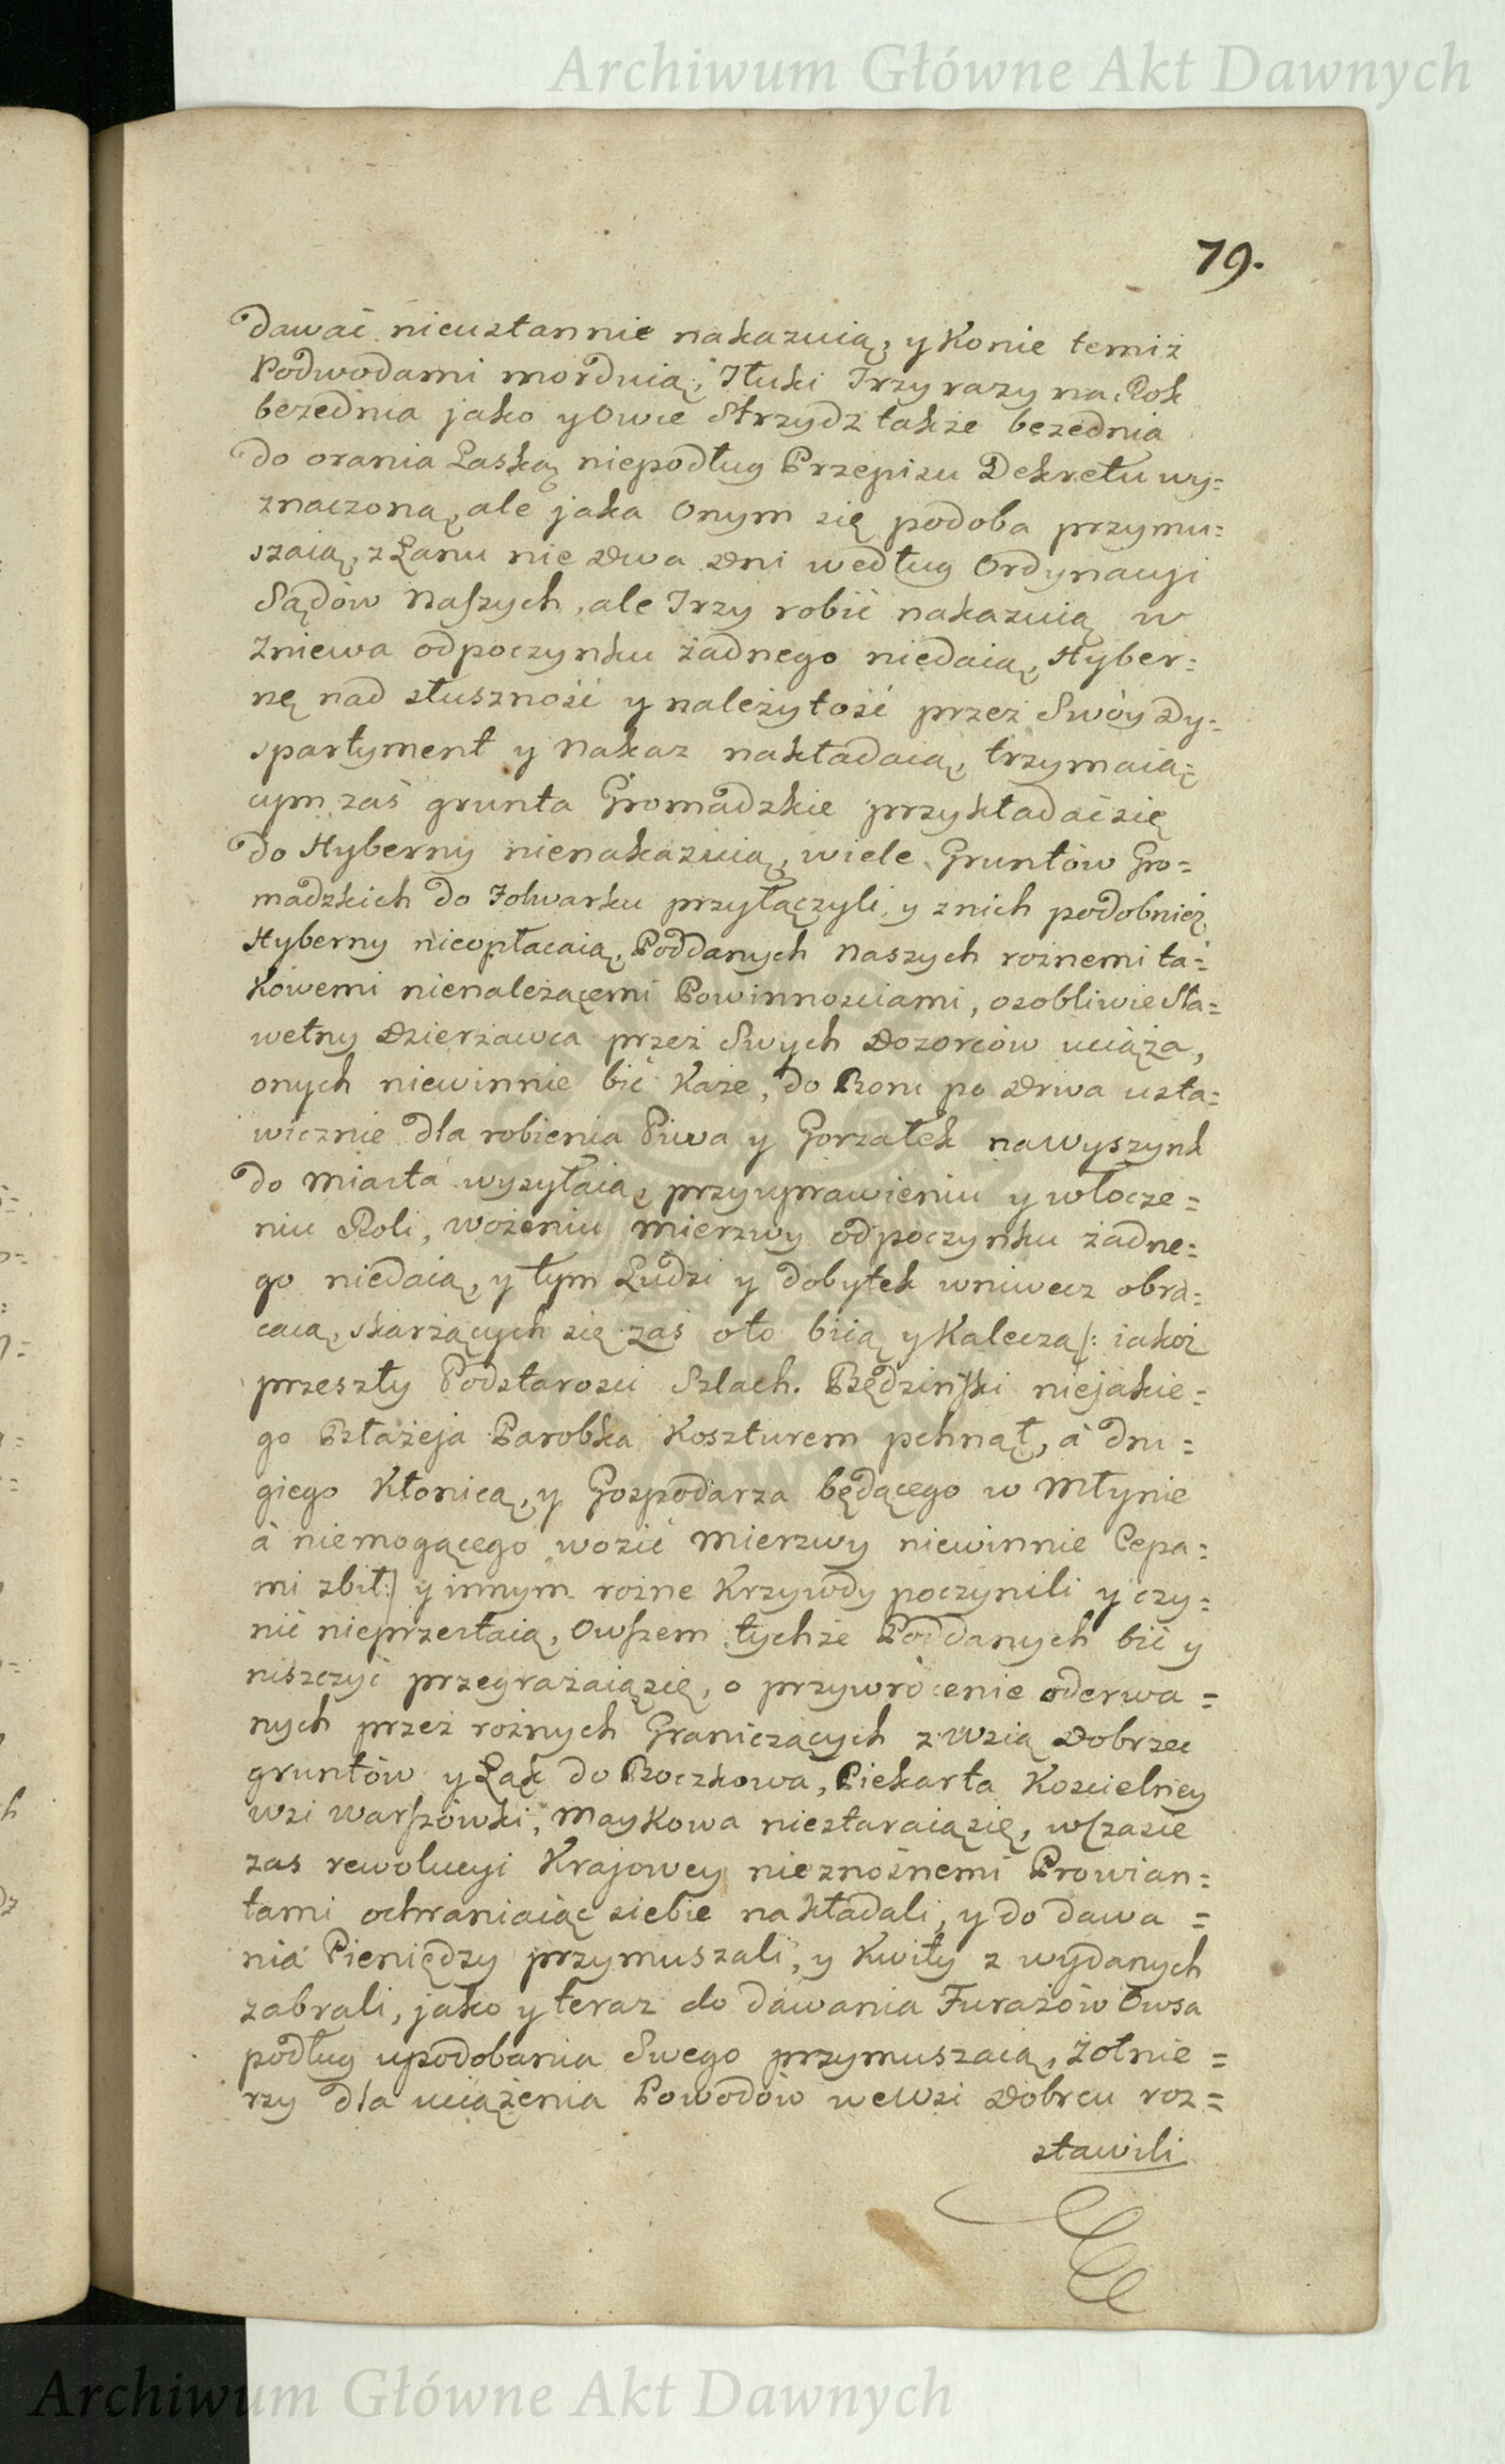 Archiwum Główne Akt Dawnych
79.
dawać nieustannie nakazuią, y Konie temiż
Podwodami morduią, Tłuki Trzy razy na Rok
bezednia jako y Owce Strzydz także bezednia
do orania Laską niepodług Przepisu Dekretu wy=
znaczoną, ale jaka Onym się podoba przymu=
szaią, z Łanu nie Dwa Dni według Ordynacyi
Sądów Naszych, ale Trzy robić nakazuią w
Zniewa odpoczynku żadnego niedaią, Hyber=
nę nad słuszność y należytość przez Swóy Dy=
spartyment y Nakaz nakładaią, trzymaią=
cym zaś grunta Gromadzkie przykładać się
do Hyberny nienakazuią, wiele Gruntów Gro=
madzkich do Folwarku przyłączyli, y znich podobnież
Hyberny nieopłacaią, Poddanych Naszych rożnemi ta=
kowemi nienależącemi Powinnosciami, osobliwie Sła=
wetny Dzierżawca przez Swych Dozorców uciąża,
onych niewinnie bić Każe, do Boru po Drwa usta=
wicznie dla robienia Piwa y Gorzałek na Wyszynk
do Miasta wysyłaią, przy uprawieniu y włocze=
niu Roli, wożeniu Mierzwy odpoczynku żadne=
go niedaią, y tym Ludzi y dobytek wniwecz obra=
caią, skarżących się zaś oto biią y Kaleczą /: iakoż
przeszły Podstarosci Szlach. Będziński niejakie=
go Błażeja Parobka Koszturem pchnął, à dru=
giego Kłonicą, y Gospodarza będącego w Młynie
à niemogącego wozić Mierzwy niewinnie Cepa=
mi zbił :/ y innym rożne Krzywdy poczynili y czy=
nić nieprzestaią, Owszem tychże Poddanych bić y
niszczyć przegrażaią się, o przywrócenie oderwa=
nych przez rożnych Graniczących z Wsią Dobrzec
gruntów y Łąk do Boczkowa, Piekarta Koscielney
wsi Warszówki, Maykowa niestaraią się, w czasie
zas rewolucyi Krajowey nieznośnemi Prowian=
tami ochraniaiąc siebie nakładali, y do dawa=
nia Pieniędzy przymuszali, y Kwity z wydanych
zabrali, jako y teraz do dawania Furażów Owsa
podług upodobania Swego przymuszaią, Żołnie=
rzy dla uciążenia Powodów we Wsi Dobrcu roz=
stawili
Archiwum Główne Akt Dawnych